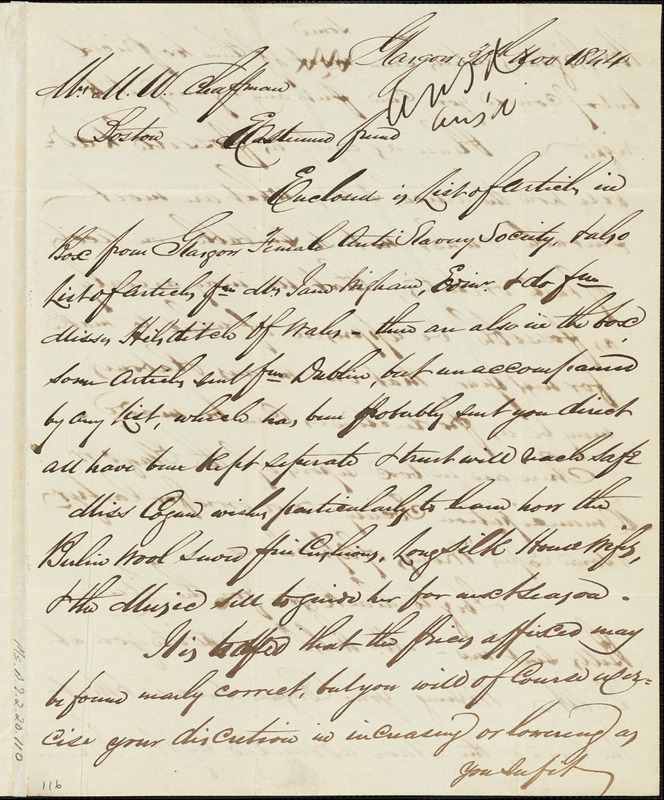 Glasgow 20th Nov 1844
Mrs M. W. Chapman
Boston Esteemed friend
ansd
ansd
Enclosed is List of Articles in
Box from Glasgow Female Anti Slavery Society, & also
List of Articles fm Mrs Jane Wigham, Edinr. & do fm
Misses Hilditch of Wales - there are also in the box
some Articles sent fm Dublin, but unaccompanied
by any List, which has been probably sent you direct
all have been kept seperate & trust will reach safe
Miss Cogan wishes particularly to learn how the
Berlin Wool Sword Pin Cushions, Long Silk House Wifes,
& the Music sell to guide her for next season.
It is hoped that the prices affixed may
be found nearly correct, but you will of Course exer-
cise your discretion in increasing or lowering as
you see fit
Ms. A.9.2.20.110
116